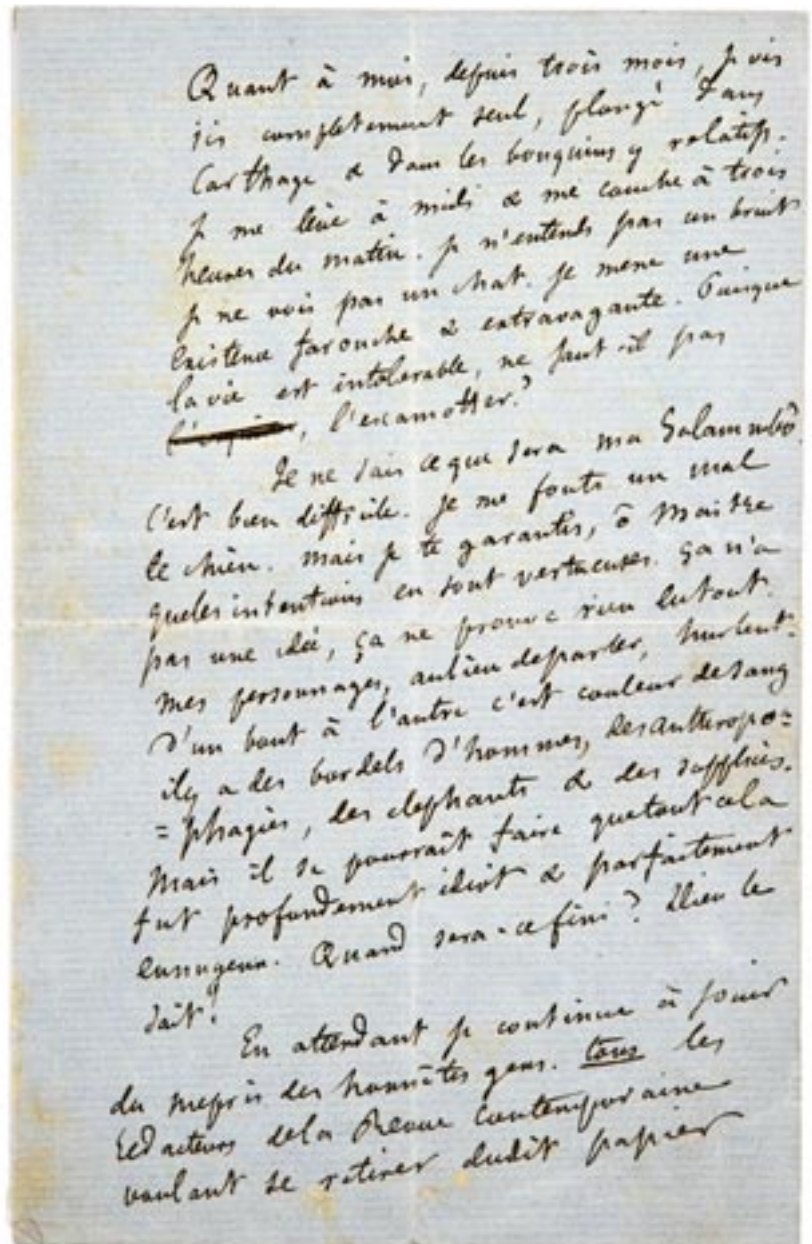 Quant à moi, depuis trois mois, je vis
ici completement seul, plongé dans
Carthage & dans les bouquins y relatifs.
je me lève à midi & me couche à trois
heures du matin. je n'entends pas un bruit
je ne vois pas un chat. je mene une
existence farouche & extravagante. Puisque
la vie est intolerable, ne faut-il pas
, l'escamotter?
Je ne sais ce que sera ma Salammbô
C'est bien difficile. je me fouts un mal
de chien. mais je te garantis, ô Maitre
que les intentions en sont vertueuses. ça n'a
pas une idée, ça ne prouve rien du tout.
mes personnages, au lieu de parler, hurlent.
D'un bout à l'autre c'est couleur de sang
il y a des bordels d'hommes, des anthropo=
=phagies, des elephants & des supplices.
Mais il se pourrait faire que tout cela
fut profondement idiot & parfaitement
ennuyeux. Quand sera-ce fini? Dieu le
sait!
En attendant je continue à jouir
du mepris des honnêtes gens. tous les
Redacteurs de la Revue Contemporaine
voulant se retirer dudit papier